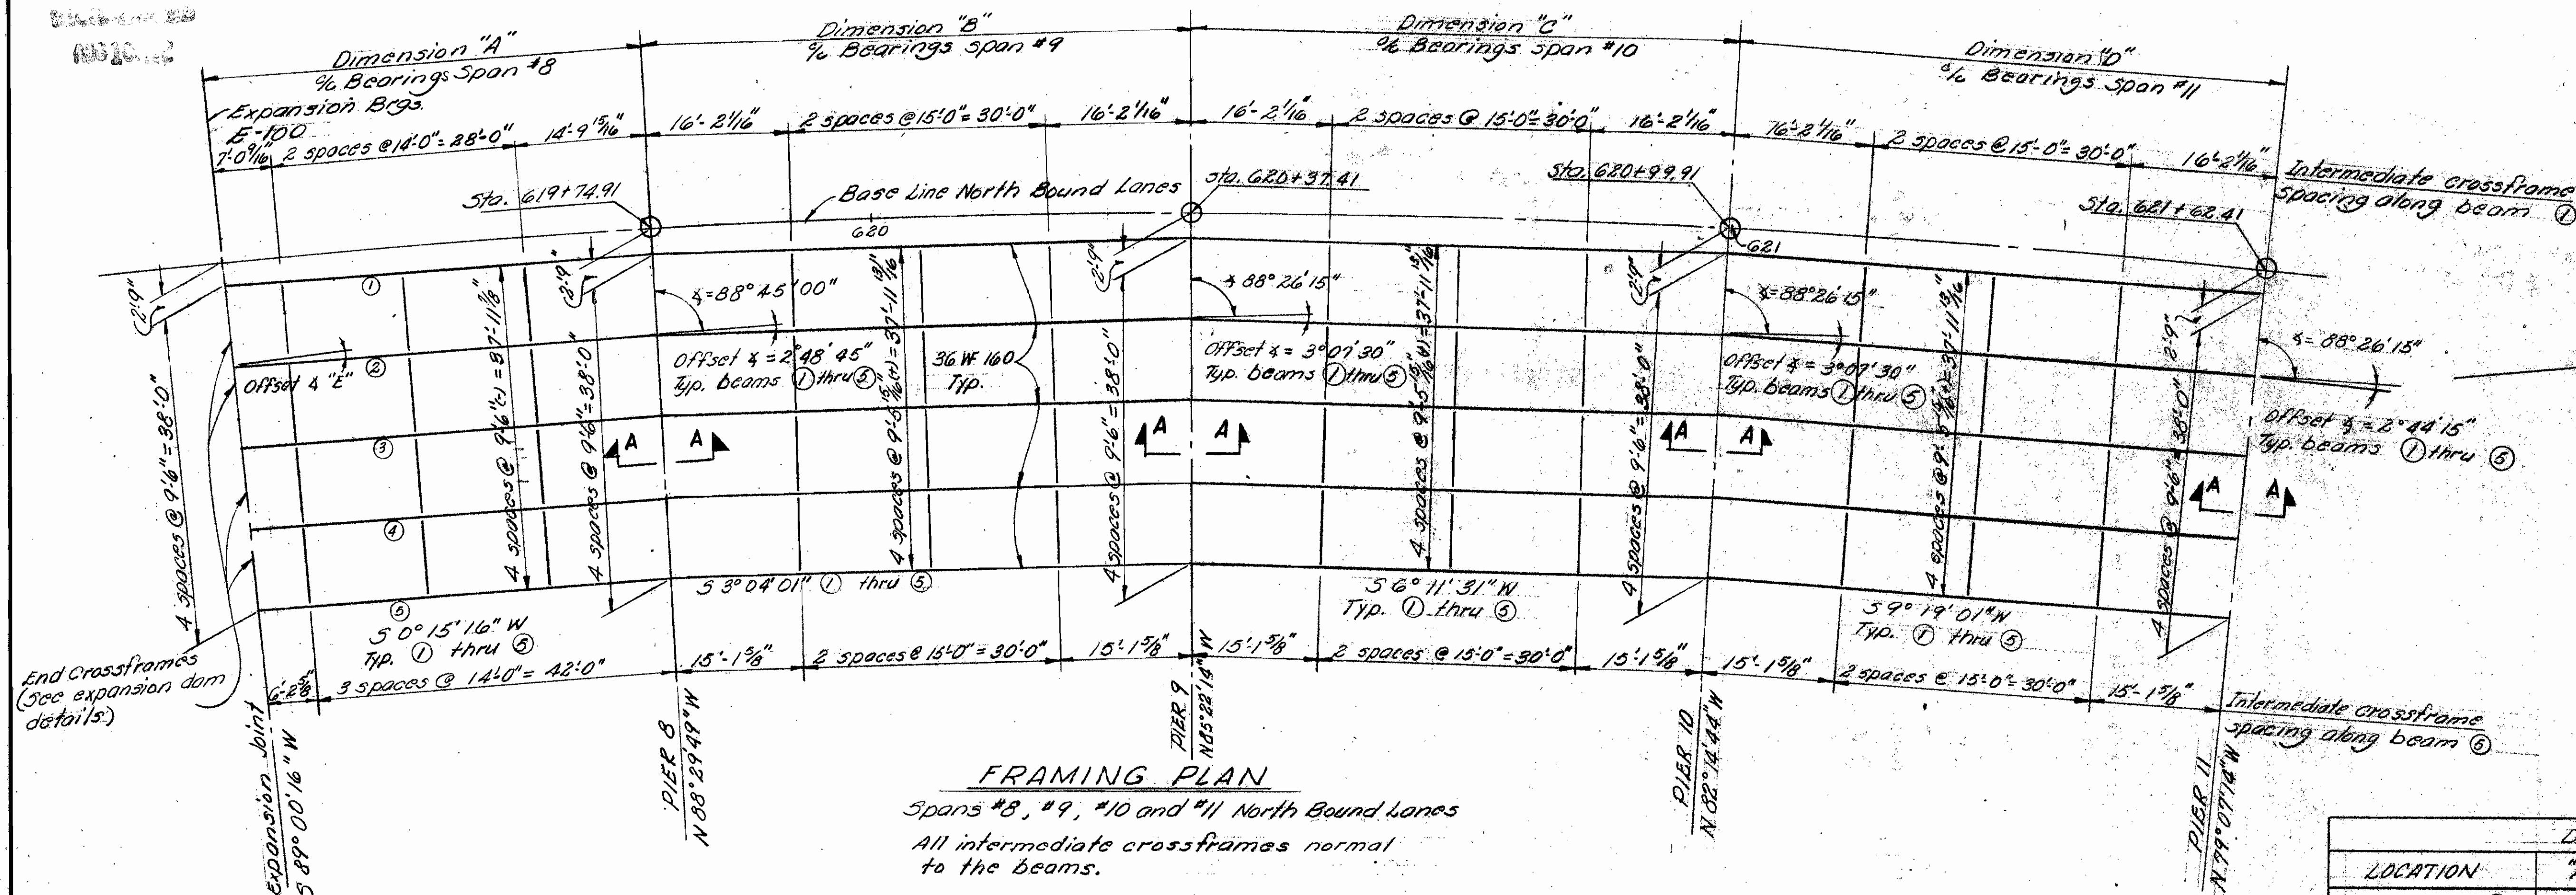 Dimension "A"
℄ Bearings Span #8
Dimension "B"
℄ Bearings Span #9
Dimension "C"
℄ Bearings Span #10
Dimension "D"
℄ Bearings Span #11
Expansion Brgs.
E-100
7'-0 9/16"
2 spaces @ 14'-0" = 28'-0"
14'-9 15/16"
16'-2 1/16"
2 spaces @ 15'-0" = 30'-0"
16'-2 1/16"
16'-2 1/16"
2 spaces @ 15'-0" = 30'-0"
16'-2 1/16"
16'-2 1/16"
2 spaces @ 15'-0" = 30'-0"
16'-2 1/16"
Intermediate crossframe
spacing along beam ①
Sta. 619+74.91
Base Line North Bound Lanes
Sta. 620+37.41
Sta. 620+99.91
Sta. 621+62.41
620
621
2'-9"
2'-9"
2'-9"
2'-9"
2'-9"
①
②
③
④
⑤
∡=88°45'00"
∡ 88°26'15"
∡=88°26'15"
∡=88°26'15"
Offset ∡ "E"
Offset ∡ = 2°48'45"
Typ. beams ① thru ⑤
36 WF 160
Typ.
Offset ∡ = 3°07'30"
Typ. beams ① thru ⑤
Offset ∡ = 3°07'30"
Typ. beams ① thru ⑤
Offset ∡ = 2°44'15"
Typ. beams ① thru ⑤
4 spaces @ 9'-6" = 38'-0"
4 spaces @ 9'-6"(-) = 37'-11 7/8"
4 spaces @ 9'-6" = 38'-0"
4 spaces @ 9'-5 15/16"(+) = 37'-11 13/16"
4 spaces @ 9'-6" = 38'-0"
4 spaces @ 9'-5 15/16"(+) = 37'-11 13/16"
4 spaces @ 9'-6" = 38'-0"
4 spaces @ 9'-5 15/16"(+) = 37'-11 13/16"
4 spaces @ 9'-6" = 38'-0"
A A
A A
A A
A A
S 0°15'16" W
Typ. ① thru ⑤
S 3°04'01" ① thru ⑤
S 6°11'31" W
Typ. ① thru ⑤
S 9°19'01" W
Typ. ① thru ⑤
End Crossframes
(See expansion dam
details)
6'-2 5/8"
3 spaces @ 14'-0" = 42'-0"
15'-1 5/8"
2 spaces @ 15'-0" = 30'-0"
15'-1 5/8"
15'-1 5/8"
2 spaces @ 15'-0" = 30'-0"
15'-1 5/8"
15'-1 5/8"
2 spaces @ 15'-0" = 30'-0"
15'-1 5/8"
Intermediate crossframe
spacing along beam ⑤
Expansion Joint
S 89°00'16" W
PIER 8
N 88°29'49" W
PIER 9
N 85°22'14" W
PIER 10
N 82°14'44" W
PIER 11
N 79°07'14" W
FRAMING PLAN
Spans #8, #9, #10 and #11 North Bound Lanes
All intermediate crossframes normal
to the beams.
LOCATION